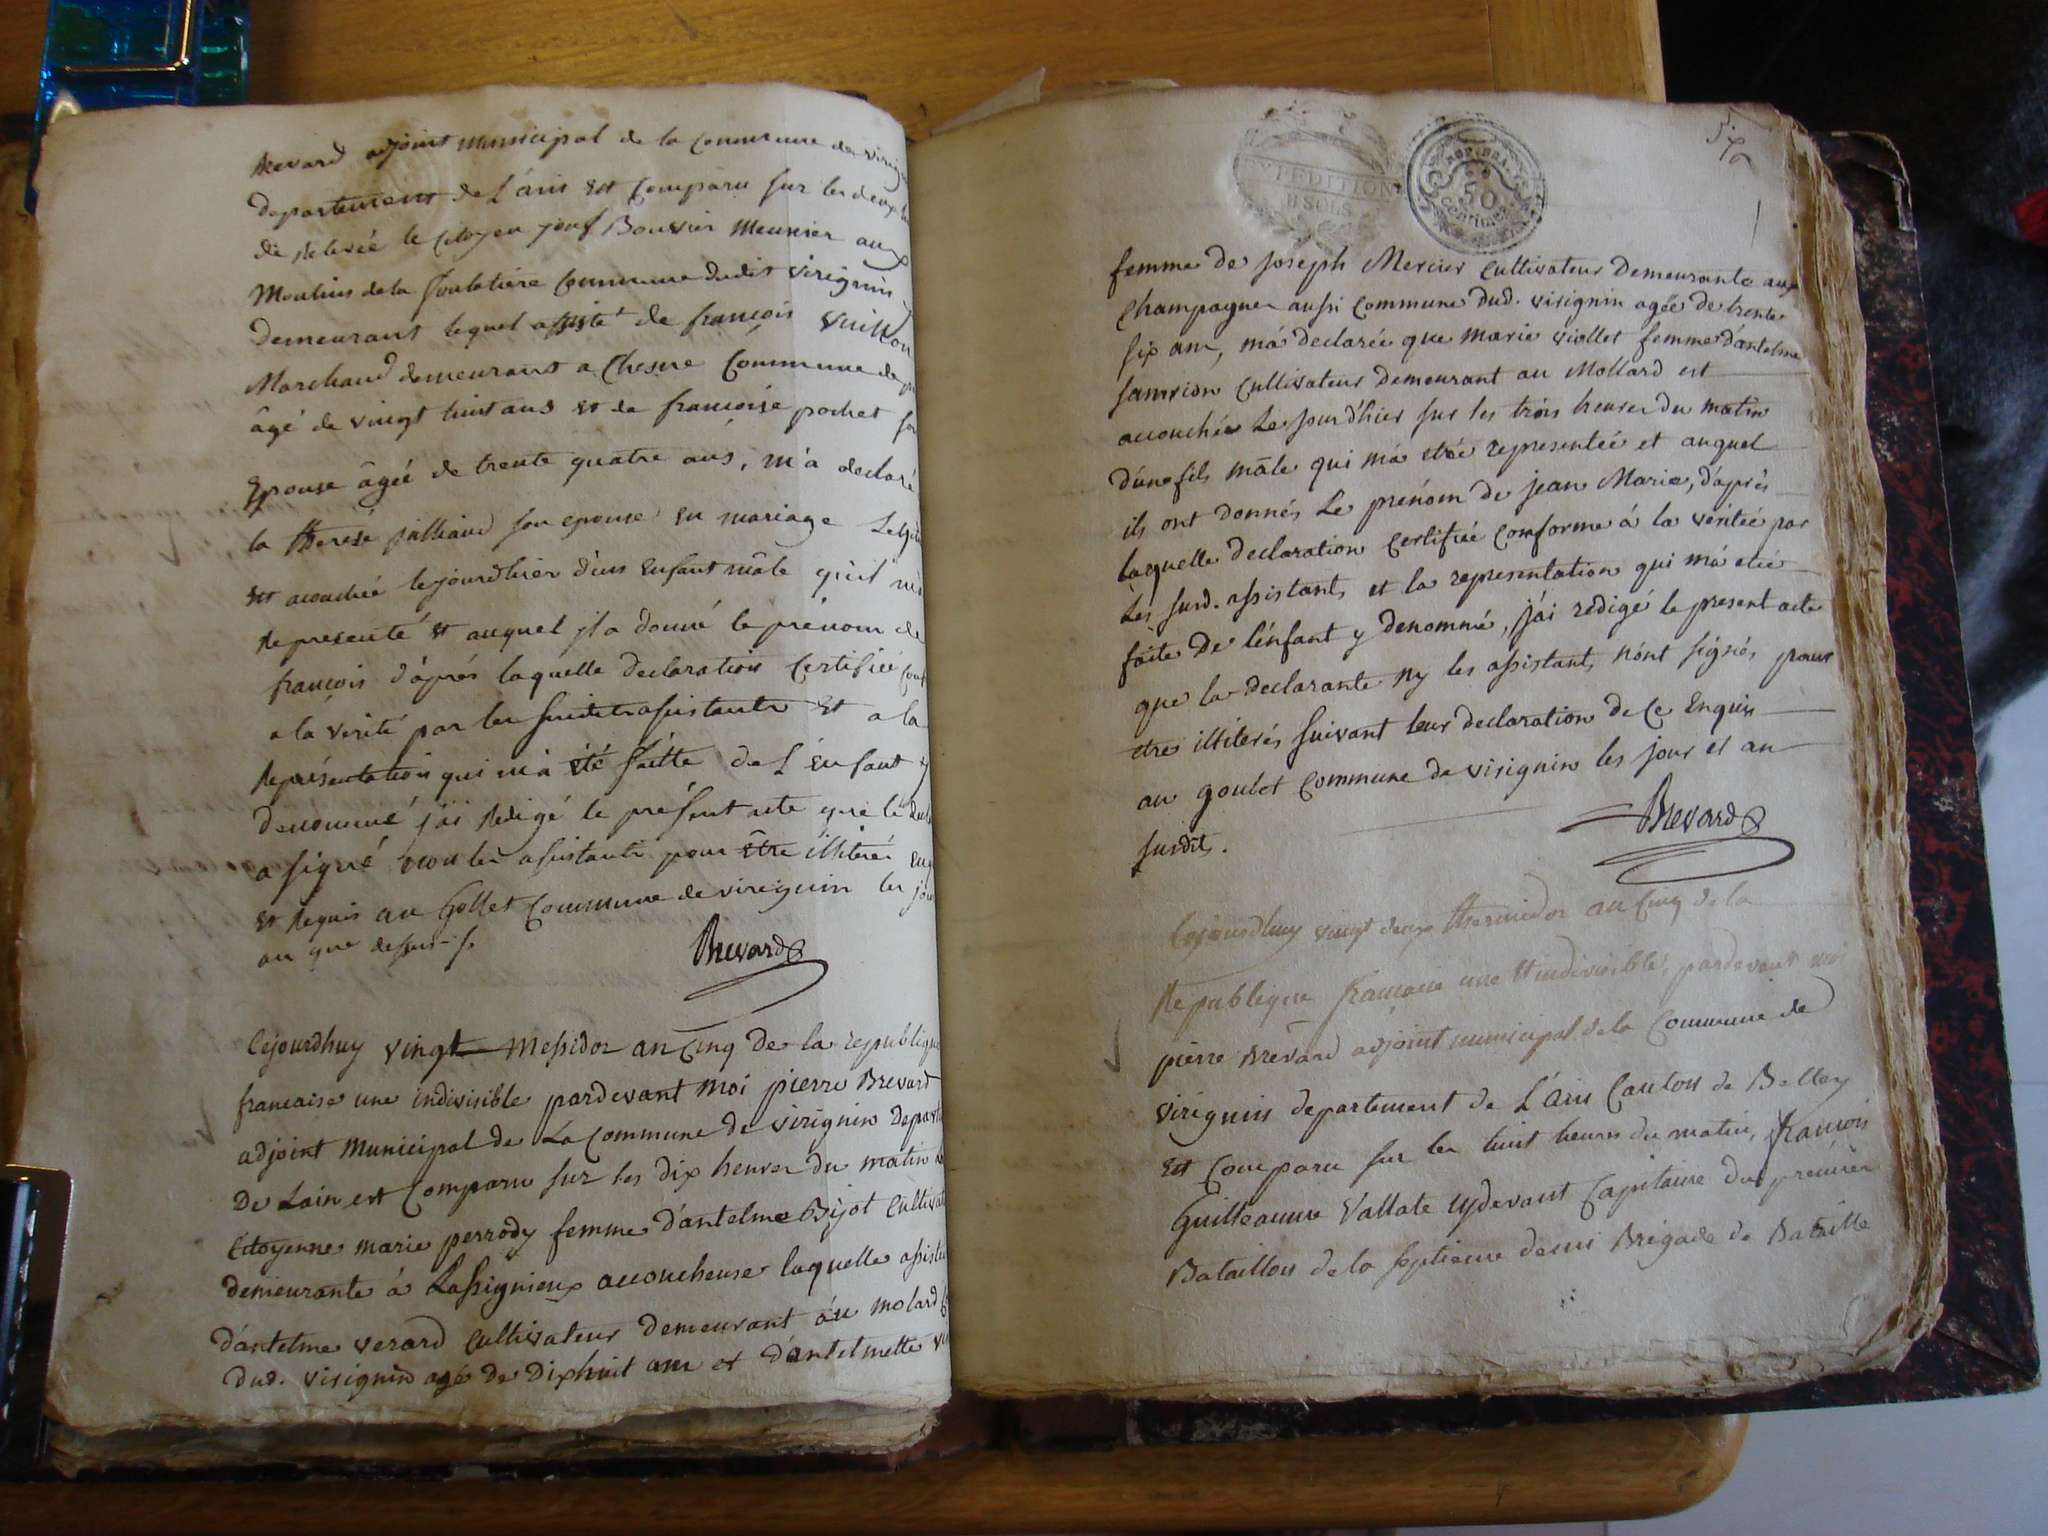 Brevard adjoint municipal de la commune de virig
departement de L'ain est Comparu sur les deux
de relevée le Citoyen josef Bouvier Meunier aux
Moulins de la Commune dudit virignin
demeurant lequel assisté de françois Vuillon
Marchand demeurant a Chesne Commune de
âgé de vingt huit ans et de françoise pochet
Epouse âgée de trente quatre ans, m'a declaré
la therese julliand son epouse en mariage Legit
est acouchée le jourdhier d'un Enfant mâle qu'il m'a
representé et auquel il a donné le prénom de
françois d'après laquelle declaration Certifiée Conf
a la verité par les susdits assistants Et a la
Représentation qui m'a été faitte de L'enfant y
denommé j'ai Redigé le présent acte que le decl
a signé non les assistants pour être illiteré
et Requis au Gollet Commune de virignin les jou
an que dessus
Brevard
Cejourdhuy vingt Messidor an Cinq de la republique
francaise une indivisible pardevant moi pierre Brevard
adjoint Municipal de La Commune de virignin Depart
De Lain est Comparu sur les dix heures du matin
Citoyenne marie perrody femme d'antelme Bijot Cultivat
demeurante á Lassignieux accoucheuse laquelle assist
d'antelme verard cultivateur demeurant áu molard
dud. virignin agé de dixhuit ans et d'antelmette
femme de joseph Mercier cultivateur demeurante aux
Champagnes aussi commune dud. virignin agée de trente
six ans, m'á declarée que marie viollet femme d'antelme
samrion Cultivateur demeurant au Mollard est
accouchée Le jourd'hier sur les trois heures du matin
d'une fils mâle qui m'á etée representée et auquel
ils ont donnés Le prénom de jean Marie, d'aprés
laquelle declaration certifiée conforme á la véritée par
Les susd. assistants et la representation qui m'á etée
faite de l'enfant y denommé, j'ai redigé le present acte
que la declarante ny les assistants n'ont signés pour
etre illiterés suivant leur declaration de ce Enquis
au goulet commune de virignin les jour et an
susdits.
Brevard
Cejourdhuy vingt deux thermidor an Cinq de la
Republique francaise une et indivisible, pardevant moi
pierre Brevard adjoint municipal de la Commune de
virignin departement de L'ain Canton de Belley
est Comparu sur les huit heures du matin, francois
Guilleaume Vallate cydevant Capitaine du premier
Bataillon de la septieme demi Brigade de Bataille
EXPEDITION
REP. FRA.
50
centimes